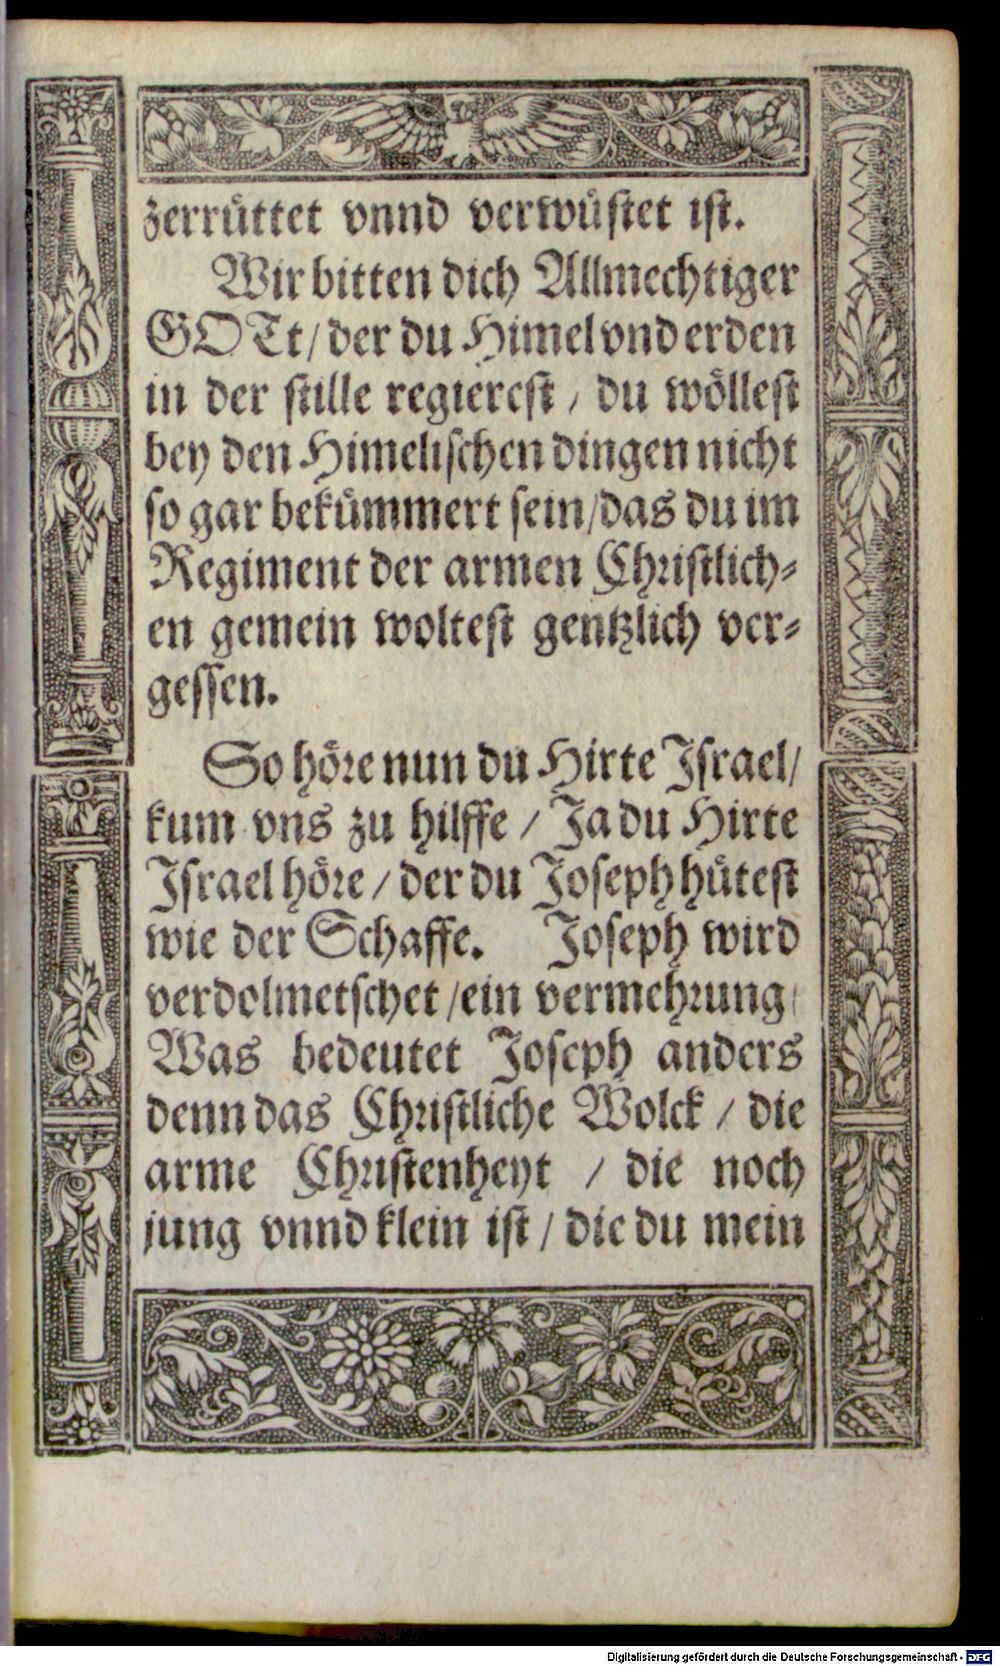 zerruͤttet vnnd verwuͤſtet iſt.
Wir bitten dich Allmechtiger
GOTt/ der du Himel vnd erden
in der ſtille regiereſt / du woͤlleſt
bey den Himeliſchen dingen nicht
ſo gar bekuͤmmert ſein/das du im
Regiment der armen Chriſtlich⸗
en gemein wolteſt gentzlich ver⸗
geſſen.
So hoͤre nun du Hirte Iſrael/
kum vns zu hilffe / Ja du Hirte
Iſrael hoͤre / der du Joſeph huͤteſt
wie der Schaffe. Joſeph wird
verdolmetſchet /ein vermehrung/
Was bedeutet Joſeph anders
denn das Chriſtliche Wolck / die
arme Chriſtenheyt / die noch
jung vnnd klein iſt / die du mein
Digitalisierung gefördert durch die Deutsche Forschungsgemeinschaft - DFG